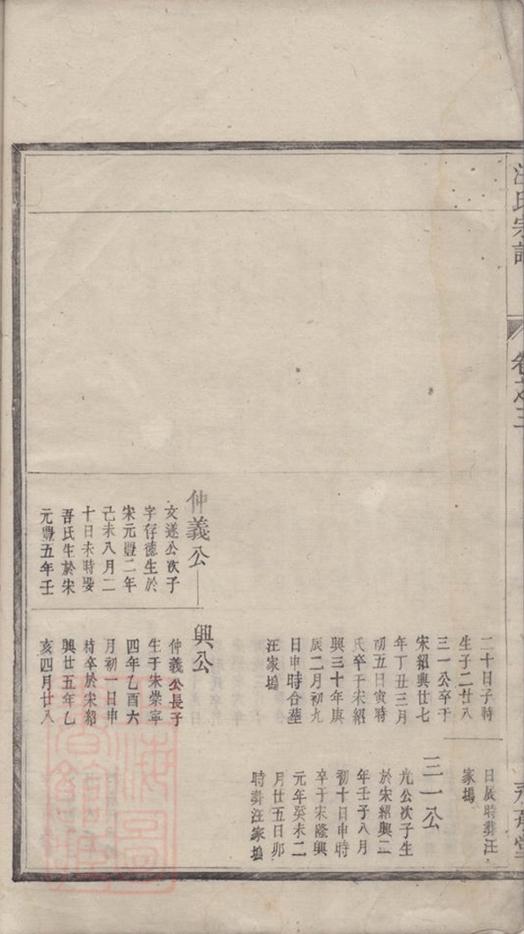 汪氏宗譜
卷之三
仲義公
文遂公次子
字存德生於
宋元豐二年
己未八月二
十日未時娶
吾氏生於宋
元豐五年壬
二十日子時
生子二廿八
三一公卒于
宋紹興廿七
年丁丑三月
初五日寅時
氏卒于宋紹
興三十年庚
辰二月初九
日申時合塟
汪家塢
興公
仲義公長子
生于宋崇寧
四年乙酉六
月初一日申
時卒於宋紹
興廿五年乙
亥四月廿八
日辰時葬汪
家塢
三一公
光公次子生
於宋紹興二
年壬子八月
初十日申時
卒于宋隆興
元年癸未二
月廿五日卯
時葬汪家塢